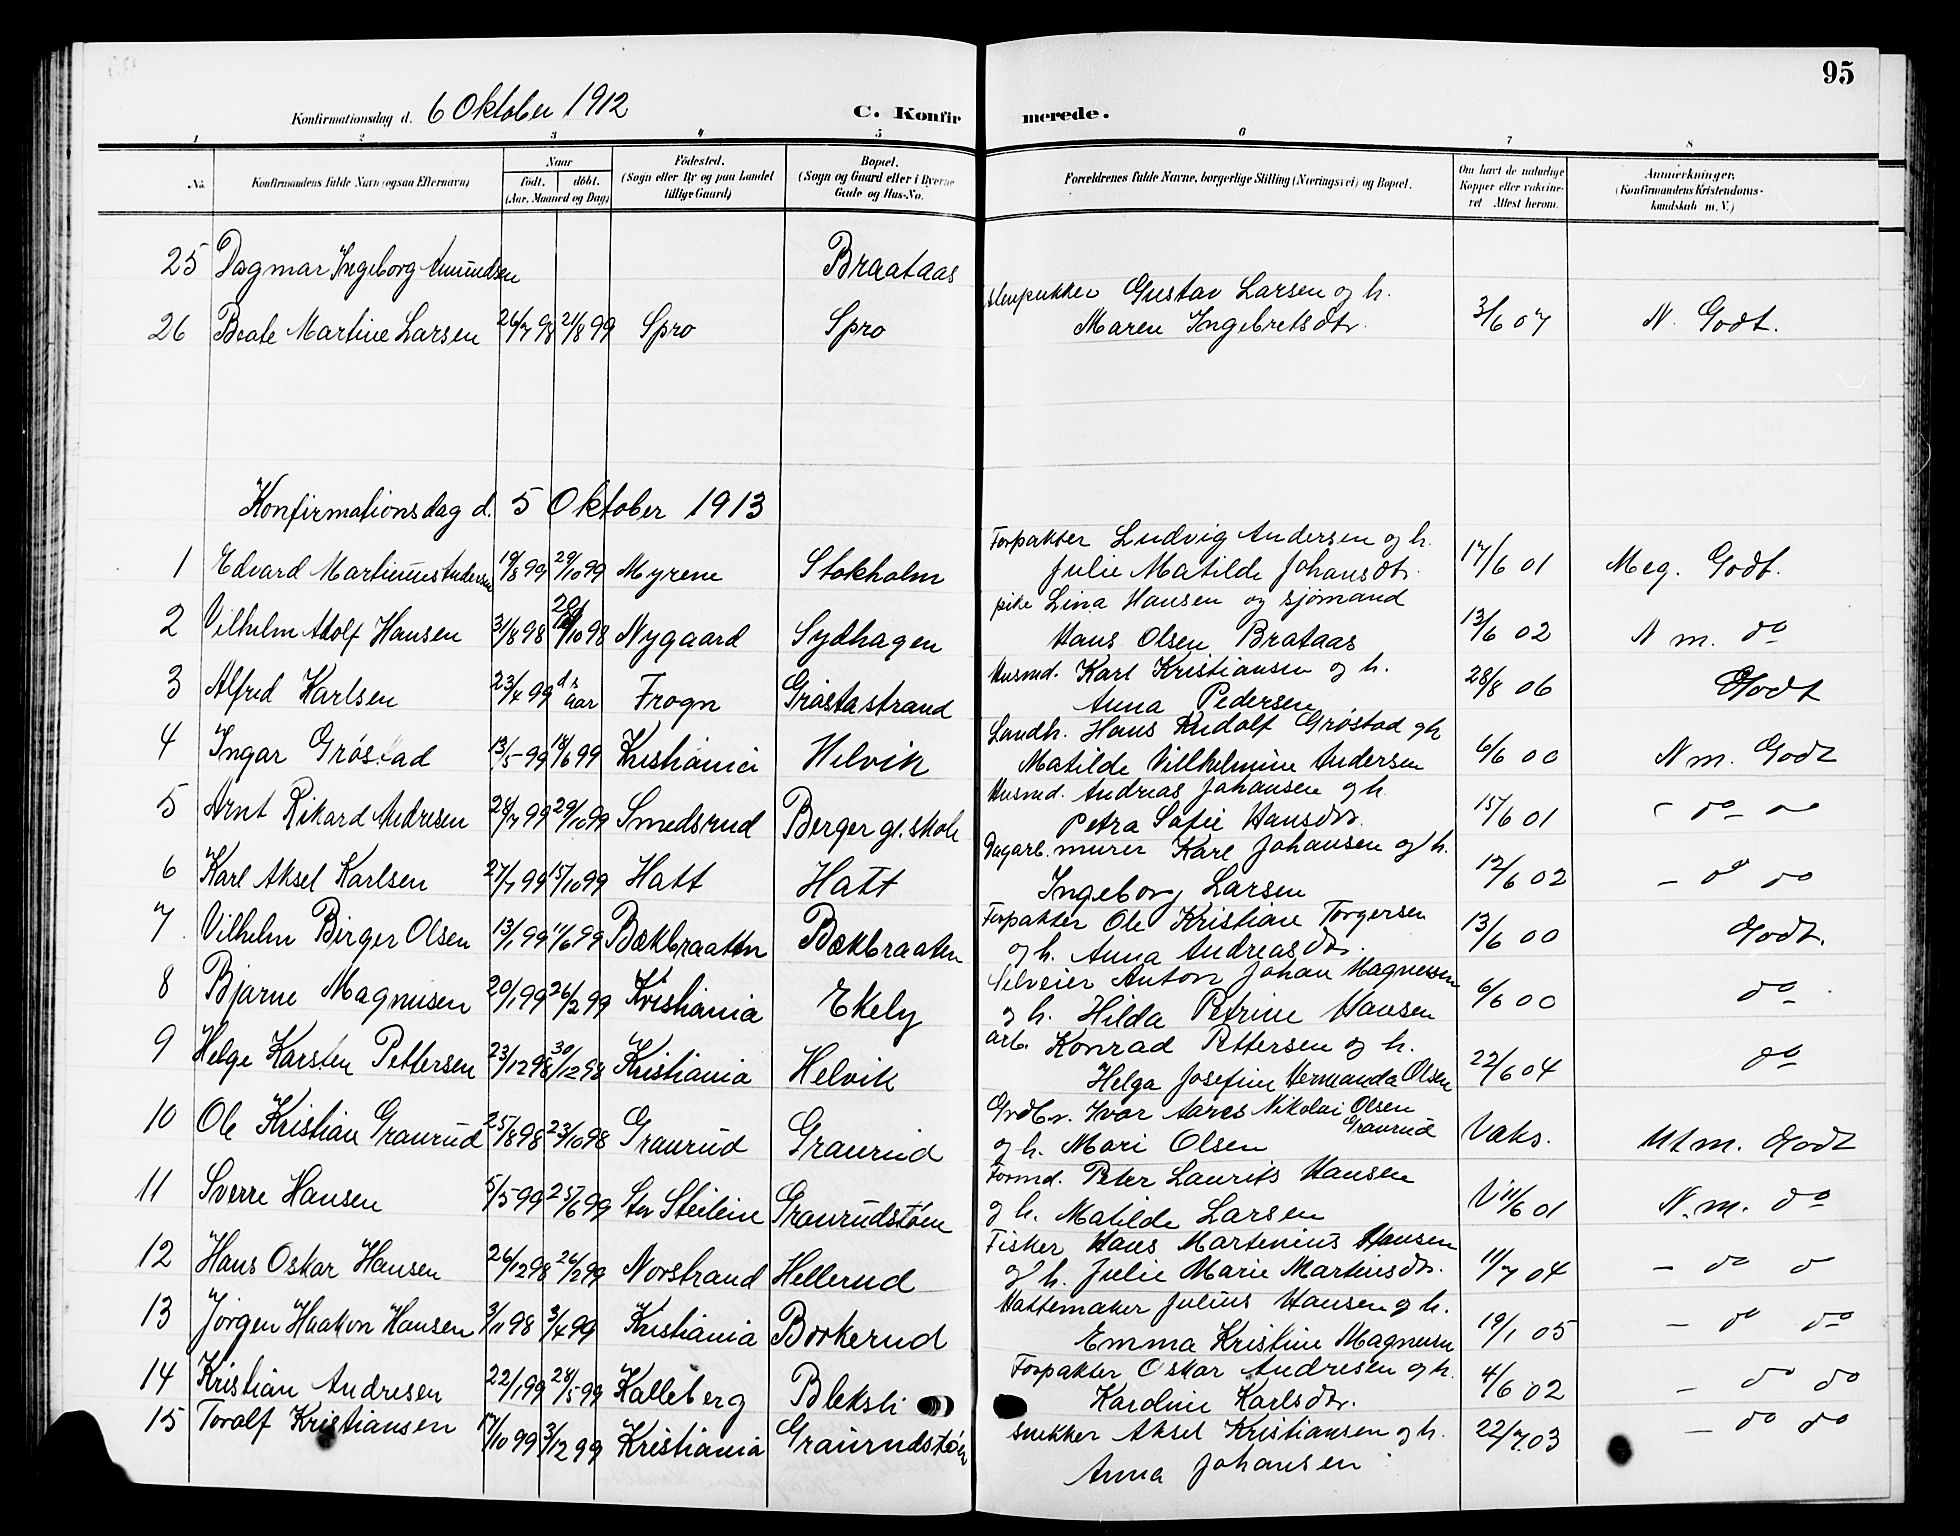 95
Konfirmationsdag d. 6 Oktober 1912 C. Konfirmerede.
1 2 3 4 5 6 7 8
No. Konfirmandens fulde Navn (ogsaa Efternavn) Naar født. døbt. (Aar, Maaned og Dag) Fødested. (Sogn eller By og paa Landet tillige Gaard) Bopæl. (Sogn og Gaard eller i Byerne Gade og Hus-No. Forældrenes fulde Navne, borgerlige Stilling (Næringsvei) og Bopæl. Om havt de naturlige Kopper eller vakcineret Attest herom. Anmerkninger. (Konfirmandens Kristendomskundskab m. V.)
25 Dagmar Ingeborg Amundsen Braataas
26 Beate Martine Larsen 26/7 98 21/8 99 Spro Spro Stenpukker Gustav Larsen og h. Maren Ingebretsdtr. 3/6 07 N. Godt.
Konfirmationsdag d. 5 Oktober 1913
1 Edvard Martinius Andersen 19/8 99 29/10 99 Myrene Stokholm Forpakter Ludvig Andersen og h. Julie Matilde Johansdtr. 17/6 01 Meg. Godt.
2 Vilhelm Adolf Hansen 31/8 98 /10 98 Nygaard Sydhagen pike Lina Hansen og sjømand Hans Olsen Brataas 13/6 02 N m. do
3 Alfred Karlsen 23/4 99 ds aar Frogn Grøstastrand Husmd. Karl Kristiansen og h. Anna Pedersen 28/8 06 Godt
4 Ingar Grøstad 13/5 99 18/6 99 Kristiania Helvik Landh. Hans Rudolf Grøstad og h Matilde Villhelmine Andersen 6/6 00 N m. Godt
5 Arnt Rikard Andresen 28/7 99 29/10 99 Smedsrud Berger gl. skole Husmd. Andreas Johansen og h. Petra Safie Hansdtr. 15/6 01 - do do
6 Karl Aksel Karlsen 27/7 99 15/10 99 Hatt Hatt Dagarb. murer Karl Johansen og h. Ingeborg Larsen 12/6 02 - do do
7 Vilhelm Birger Olsen 13/1 99 11/6 99 Bækbraatten Bækbraaten Forpakter Ole Kristian Torgersen og h. Anna Andreasdtr. 13/6 00 Godt.
8 Bjarne Magnusen 20/1 99 26/2 99 Kristiania Ekely Selveier Anton Johan Magnessen og h. Hilda Petrine Hansen 6/6 00 do
9 Helge Karsten Pettersen 23/12 98 30/12 98 Kristiania Helvik arb. Konrad Pettersen og h. Helga Josefine Hermanda Olsen 22/6 04 do
10 Ole Kristian Graurud 25/8 98 23/10 98 Graurud Graurud Grdbr. Ivar Aares Nikolai Olsen Graurud og h. Mari Olsen Vaks. Utm. Godt
11 Sverre Hansen 5/5 99 25/6 99 Stor Steilein Graurudstøen Formd. Peter Laurits Hansen og h. Matilde Larsen V 11/6 01 N. m. do
12 Hans Oskar Hansen 26/12 98 26/2 99 Norstrand Hellerud Fisker Hans Martinius Hansen og h. Julie Marie Martinsdtr. 11/7 04 - do do
13 Jørgen Haakon Hansen 3/11 98 3/4 99 Kristiania Bookerud Hattemaker Julius Hansen og h. Emma Kristine Magnusen 19/1 05 - do do
14 Kristian Andresen 22/1 99 28/5 99 Kalleberg Bleksli Forpakter Oskar Andresen og h. Karoline Karlsdtr. 4/6 02 - do do
15 Toralf Kristiansen 17/10 99 3/12 99 Kristiania Graurudstøen snekker Aksel Kristiansen og h. Anna Johansen 22/7 03 - do do